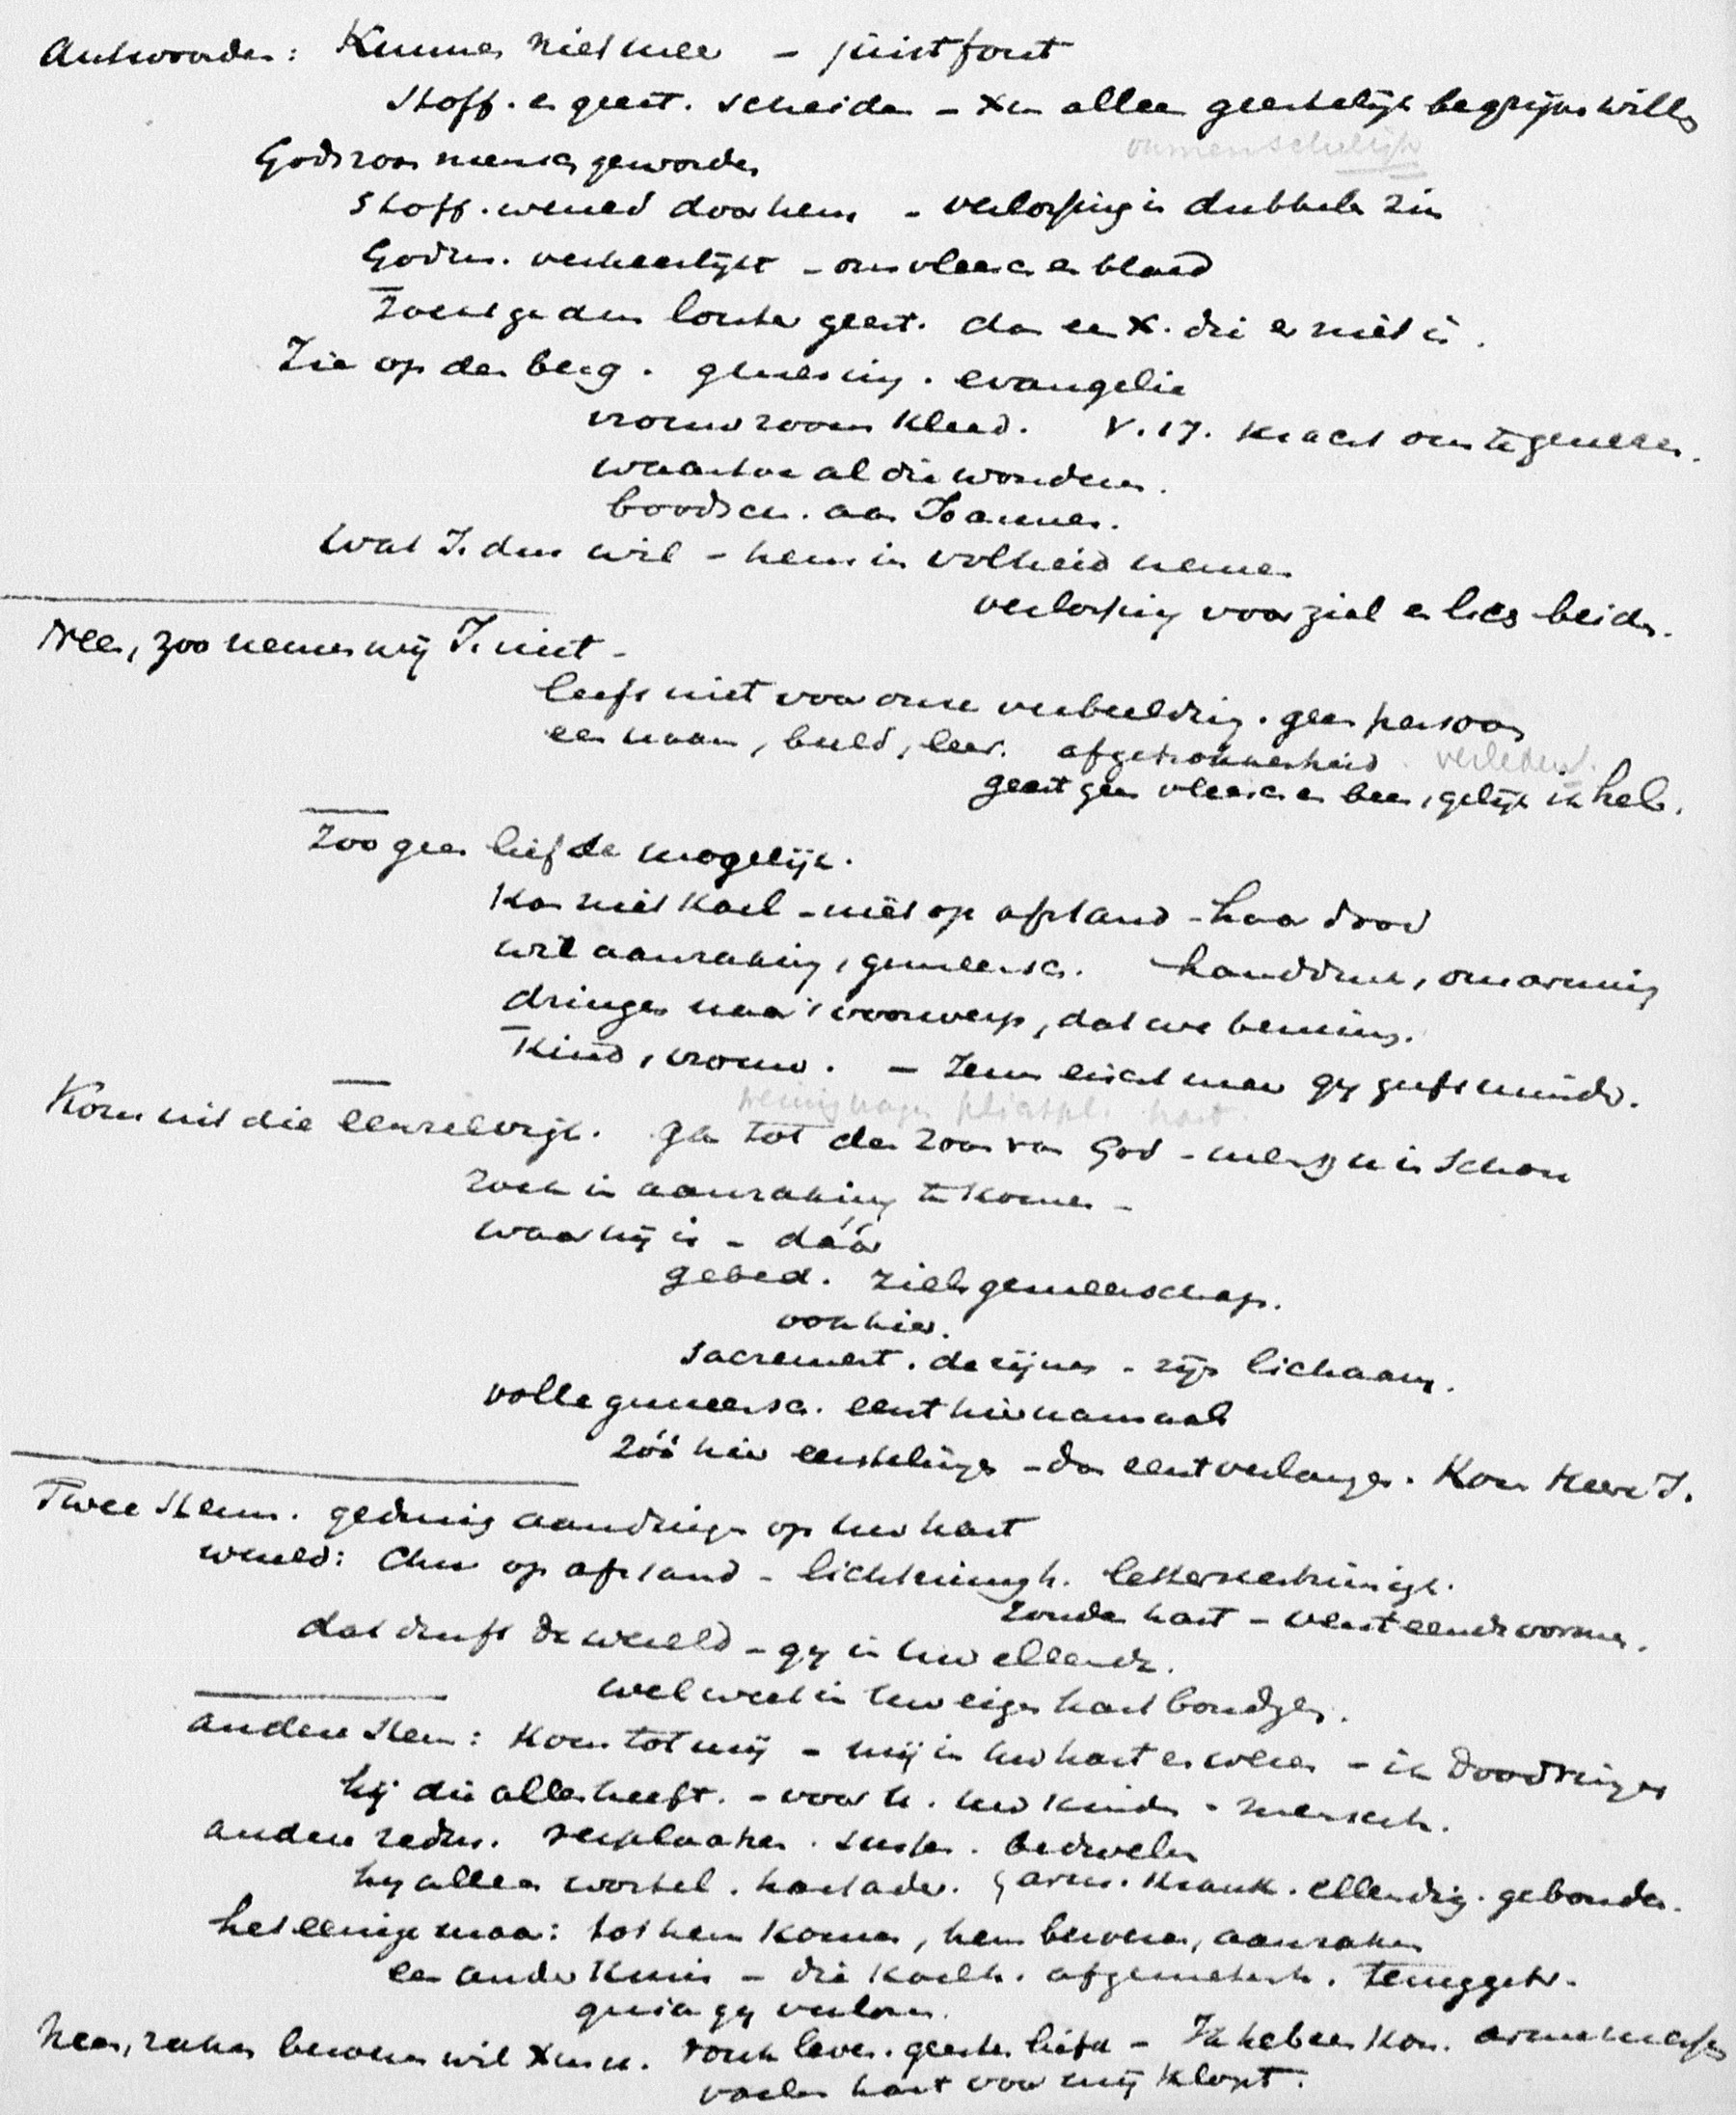 Antwoorden: Kunnen niet meer – juist fout
Stoff. en geest. scheiden – Xen alleen geestelijk begrijpen willen
onmenschelijk
Gods zoon mensch geworden
Stoff. wereld door hem – verlossing in dubbele zin
Godm. verheerlijkt – ons vleesch en bloed
Zoekt ge den louter geest. dan een X. die er niet is.
Zie op den berg. genezing. evangelie
vrouw zoom kleed. V. 17. kracht om te genezen.
waartoe al die wonderen.
boodsch. aan Joannes.
Wat J. dus wil – hem in volheid nemen
verlossing voor ziel en lich beide.
Neen, zoo nemen wij J. niet –
leeft niet voor onze verbeelding. geen persoon
een naam, beeld, leer. afgetrokkenheid. verleden
geest geen vleesch en been, gelijk ik heb.
Zoo geen liefde mogelijk.
Kan niet koel – niet op afstand – haar dood
wil aanraking, gemeensch. handdruk, omarming
dringen naar 't voorwerp, dat we beminnen.
Kind, vrouw. – Jezus eischt meer gij geeft minder.
Kom uit die eenzelvigh. ga tot den Zoon van God – mensch in
zoek in aanraking te komen –
waar hij is – dáár
gebed. zielsgemeenschap.
ook hier.
Sacrement. de zijnen – zijn lichaam.
volle gemeensch. eerst hiernamaals
zóó hier eerstelingen – dan eerst verlangen. Kom Heere J.
Twee stemm. gedurig aandringen op uw hart
wereld: Chr op afstand – letterknechterij
zonder hart – werkt eendr vormen.
dat durft de wereld – gij in uw ellende.
wel weet in uw eigen hart
andere stem: Kom tot mij – mij in uw hart en wezen – ik doordringen
hij die alles heeft. – voor u. uw kinder – mensch.
andere redm. verplaatsen. sussen. bedwelm
hij alleen wortel. hartader. arm. krank. ellendig. gebonden.
het eenige maar: tot hem komen, hem, aanraken
een ander Kruis – die koelh. afgemetenh. teruggetr.
gij verloren.
Neen, raken wil Xus u. zoek leven. geestes liefde – Ik heb een Kon.
vaders hart voor mij klopt.